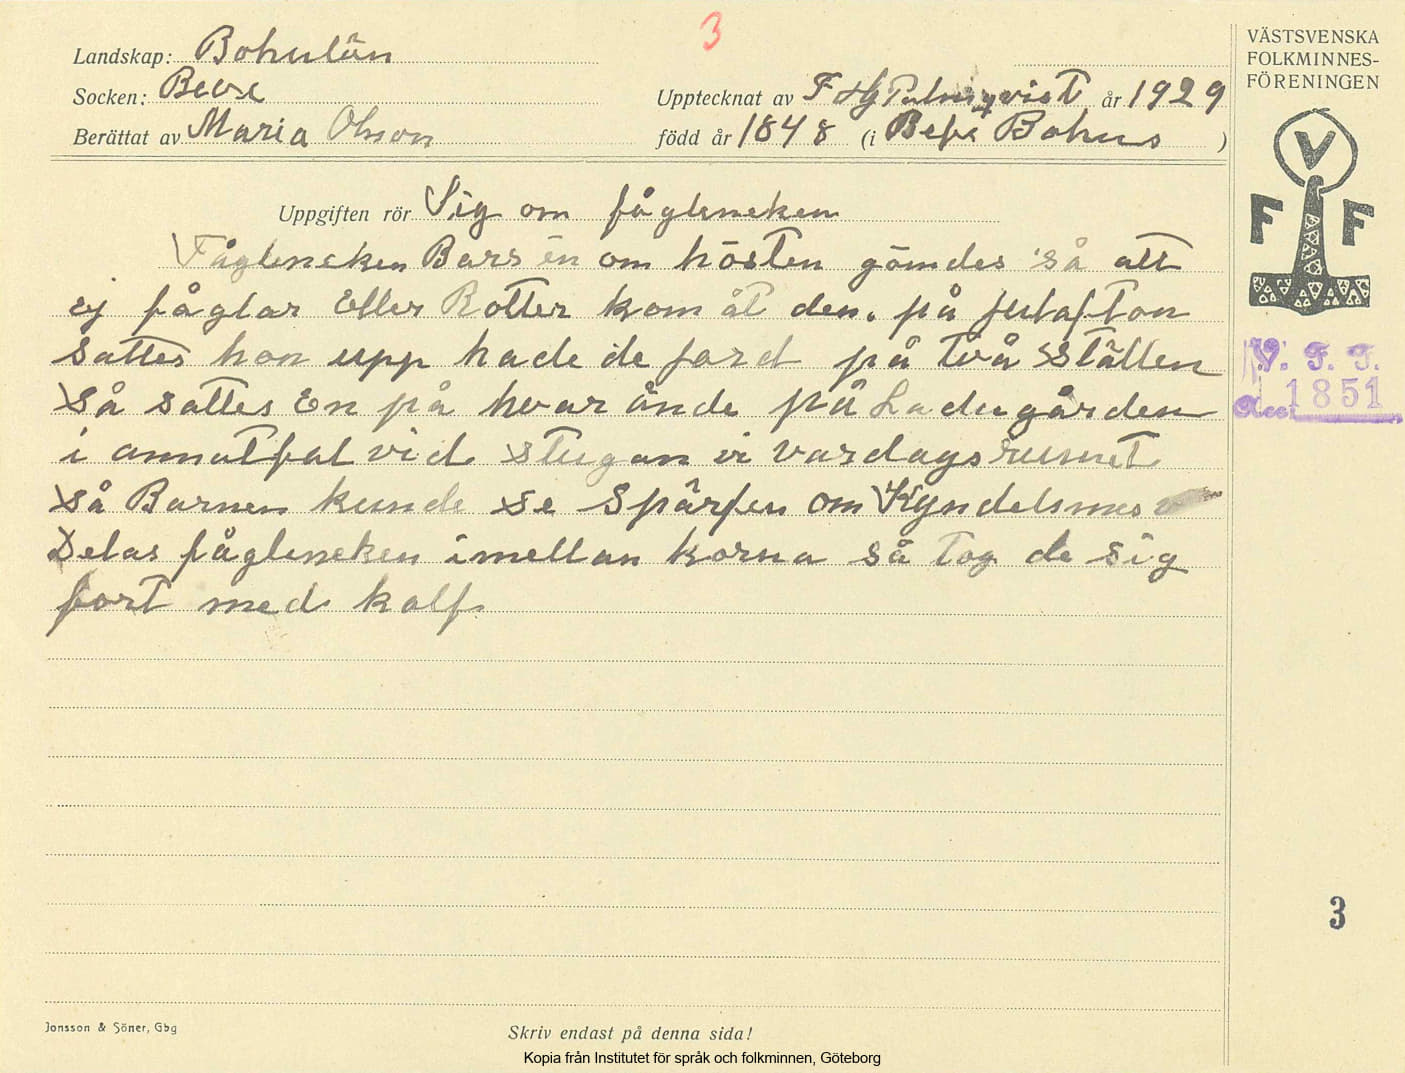 3
Landskap: Bohuslän
Socken: Beve
Berättat av Maria Olsson
Upptecknat av F Hj Palmqvist år 1929
född år 1848 (i Befve Bohus )
VÄSTSVENSKA
FOLKMINNES-
FÖRENINGEN
V
F F
Uppgiften rör Sig om fågleneken
Fågleneken Bars in om hösten gömdes så att
ej fåglar Eller Rotter kom åt den. på julafton
sattes hon upp hade de jord på två ställen
så sattes En på hvar ände på Ladugården
i annatfal vid stugan vi vardagsrumet
så Barnen kunde se Spärfen om Kyndelsmes
Delas fågleneken imellan korna så tog de sig
fort med kalf.
V. F. F.
Acc. 1851
3
Jonsson & Söner, Gbg
Skriv endast på denna sida!
Kopia från Institutet för språk och folkminnen, Göteborg